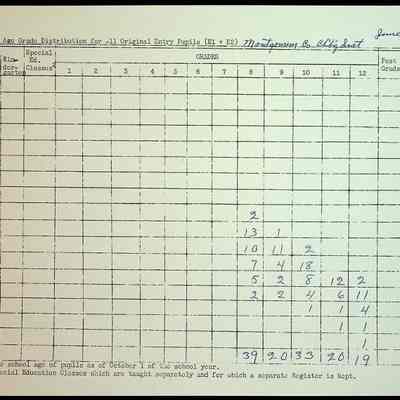 Age Grade Distribution for All Original Entry Pupils (E1 + E2) Montgomery Co
Kin-
der-
garten
Special
Ed.
Classes
GRADES
Post
Grade
1 2 3 4 5 6 7 8 9 10 11 12
2
13 1
10 11 2
7 4 18
5 2 8 12 2
2 2 4 6 11
1 1 4
1 1
1
39 20 33 20 19
school age of pupils as of October 1 of the school year.
cial Education Classes which are taught separately and for which a separate Register is kept.